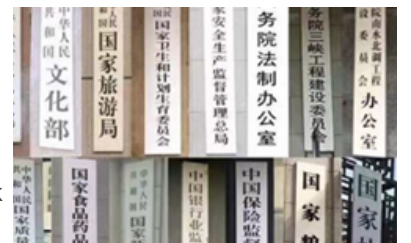 中华人民共和国文化部
中华人民共和国国家旅游局
国家卫生和计划生育委员会
国家安全生产监督管理总局
务院法制办公室
务院三峡工程建设委员会
院南水北调工程建设委员会办公室
中华人民共和国国家质量
国家食品药品
国家
中国银行业监
中国保险监督
国家粮
国家